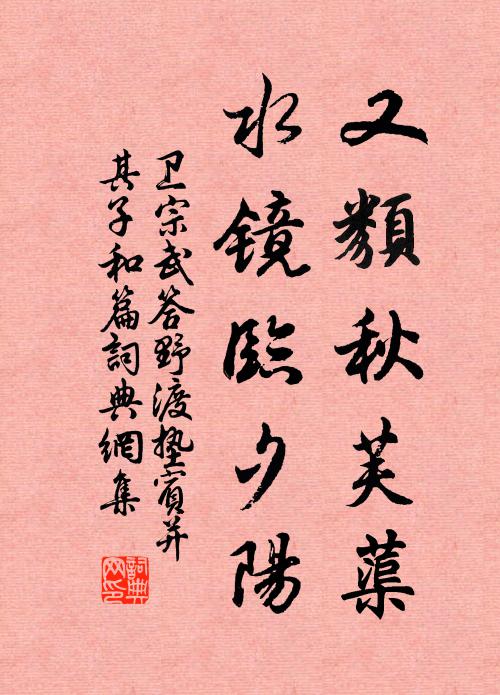 又類秋芙蕖
水鏡臨夕陽
卫宗武答野渡垫賓并
其子和篇詞典網集
詞典网印